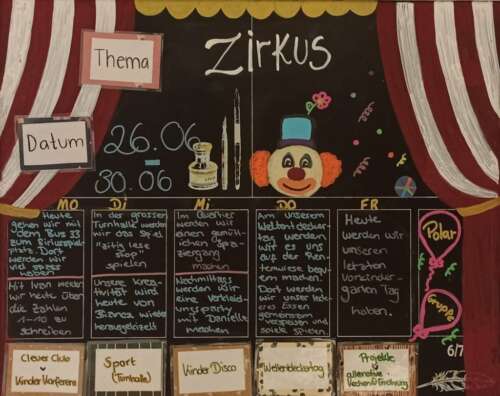 Thema
Zirkus
Datum
26.06
-
30.06
MO
DI
MI
DO
FR
Heute
gehen wir mit
dem Bus 33
zum Zirkusspiel-
platz. Dort
werden wir
viel Spass
haben
Mit Ivan werden
wir heute über
die Zahlen
schreiben
In der grossen
Turnhalle werden
wir das Spiel
spielen
Unsere Krea-
tivität wird
heute von
wieder
herausgekitzelt
Im Quartier
werden wir
einen gemüt-
lichen Spa-
ziergang
machen
Nachmittags
werden wir
eine Verkleid-
ungsparty
mit Danielle
machen
Am unserem
Weltentdeckter-
tag werden
wir es uns
auf der
bequ-
em machen.
Dort werden
wir unser leck-
eres Essen
gemeinsam
verspeisen und
sowie spielen
Heute
werden wir
unseren
letzten
Vorkinder-
garten Tag
haben.
Polar
Gruppe
6/7
Clever Club
Kinder Konferenz
Sport
(Turnhalle)
Kinder Disco
Weltentdeckertag
Projekte